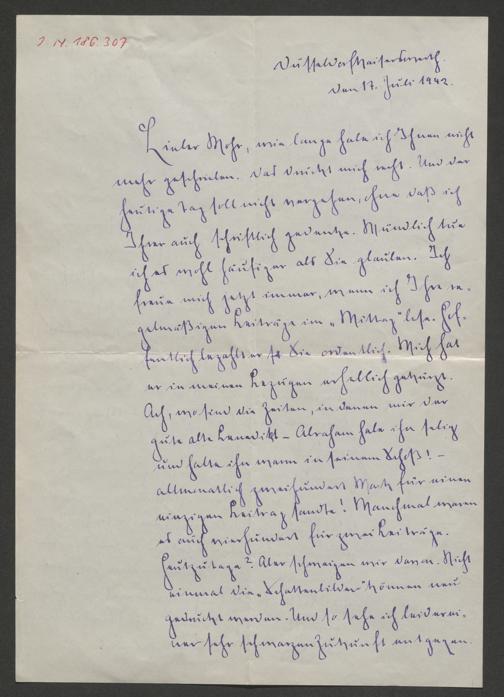 I. N. 186.307
Düsseldorf-Kaiserswerth.
den 17. Juli 1942.
Lieber Mohr, wie lange habe ich Ihnen nicht
mehr geschrieben. Das drückt mich recht. Und der
heutige Tag soll nicht vergehen, ohne daß ich
Ihrer auch schriftlich gedenke. Mündlich tue
ich es wohl häufiger als Sie glauben. Ich
freue mich jetzt immer, wenn ich Ihre re-
gelmäßigen Beiträge im „Mittag" lese. Hof-
fentlich bezahlt er Sie ordentlich. Mich hat
er in meinen Bezügen erheblich gekürzt.
Ach, wo sind die Zeiten, in denen mir der
gute alte Benedikt – Abraham habe ihn selig
und halte ihn warm in seinem Schoß! –
allmonatlich zweihundert Mark für einen
einzigen Beitrag sandte! Manchmal waren
es auch vierhundert für zwei Beiträge.
Heutzutage? Aber schweigen wir davon. Nicht
einmal die „Schattenbilder" können neu
gedruckt werden. Und so sehe ich leider ei-
ner sehr schwarzen Zukunft entgegen.